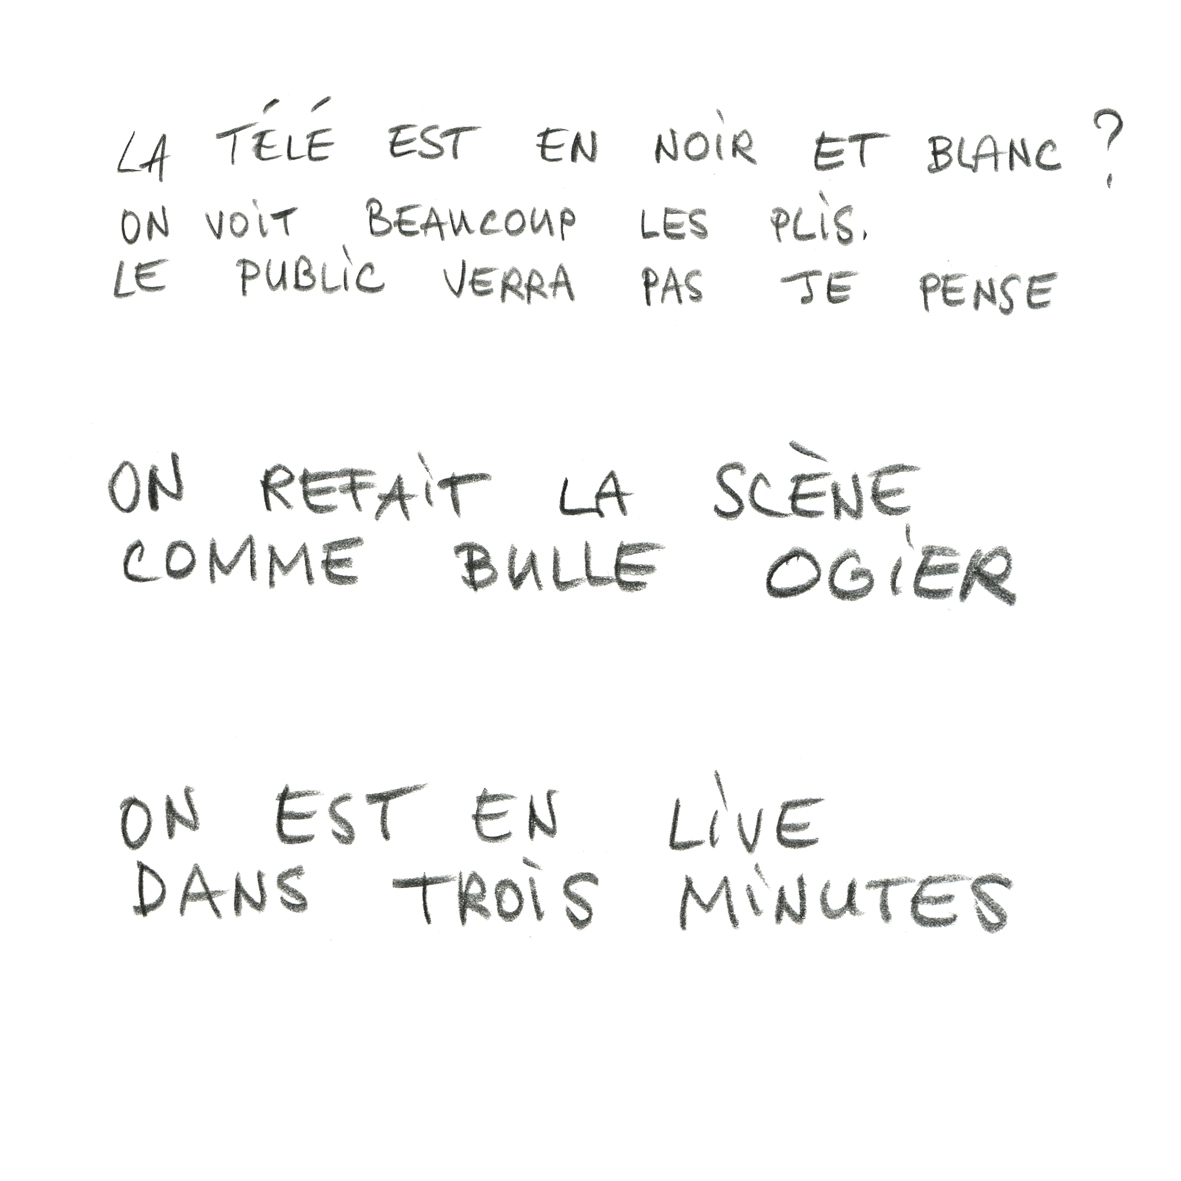 LA TÉLÉ EST EN NOIR ET BLANC ?
ON VOIT BEAUCOUP LES PLIS.
LE PUBLIC VERRA PAS JE PENSE
ON REFAIT LA SCÈNE
COMME BULLE OGIER
ON EST EN LIVE
DANS TROIS MINUTES